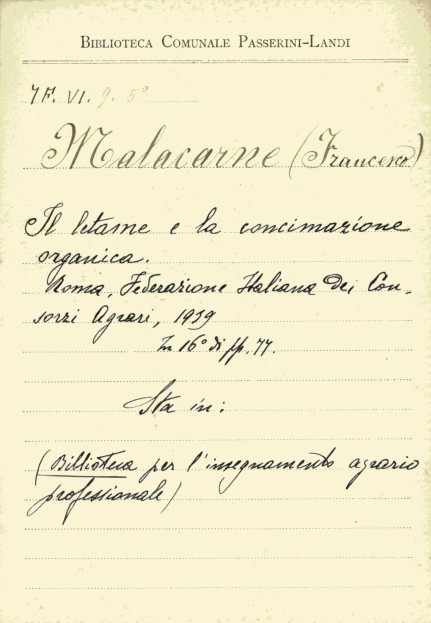 BIBLIOTECA COMUNALE PASSERINI-LANDI
7F. VI. 9. 5°
Malacarne (Francesco)
Il letame e la concimazione
organica.
Roma, Federazione Italiana dei Con-
sorzi Agrari, 1939
In 16° di pp. 77.
Sta in:
(Biblioteca per l'insegnamento agrario
professionale)